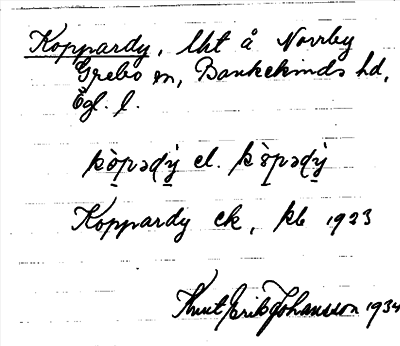 Koppardy, lht å Norrby
Grebo sn, Bankekinds hd,
Ögl. l.
kòpədỳ el. kòpədỳ
Koppardy ek, kb 1923
Knut Erik Johansson 1934